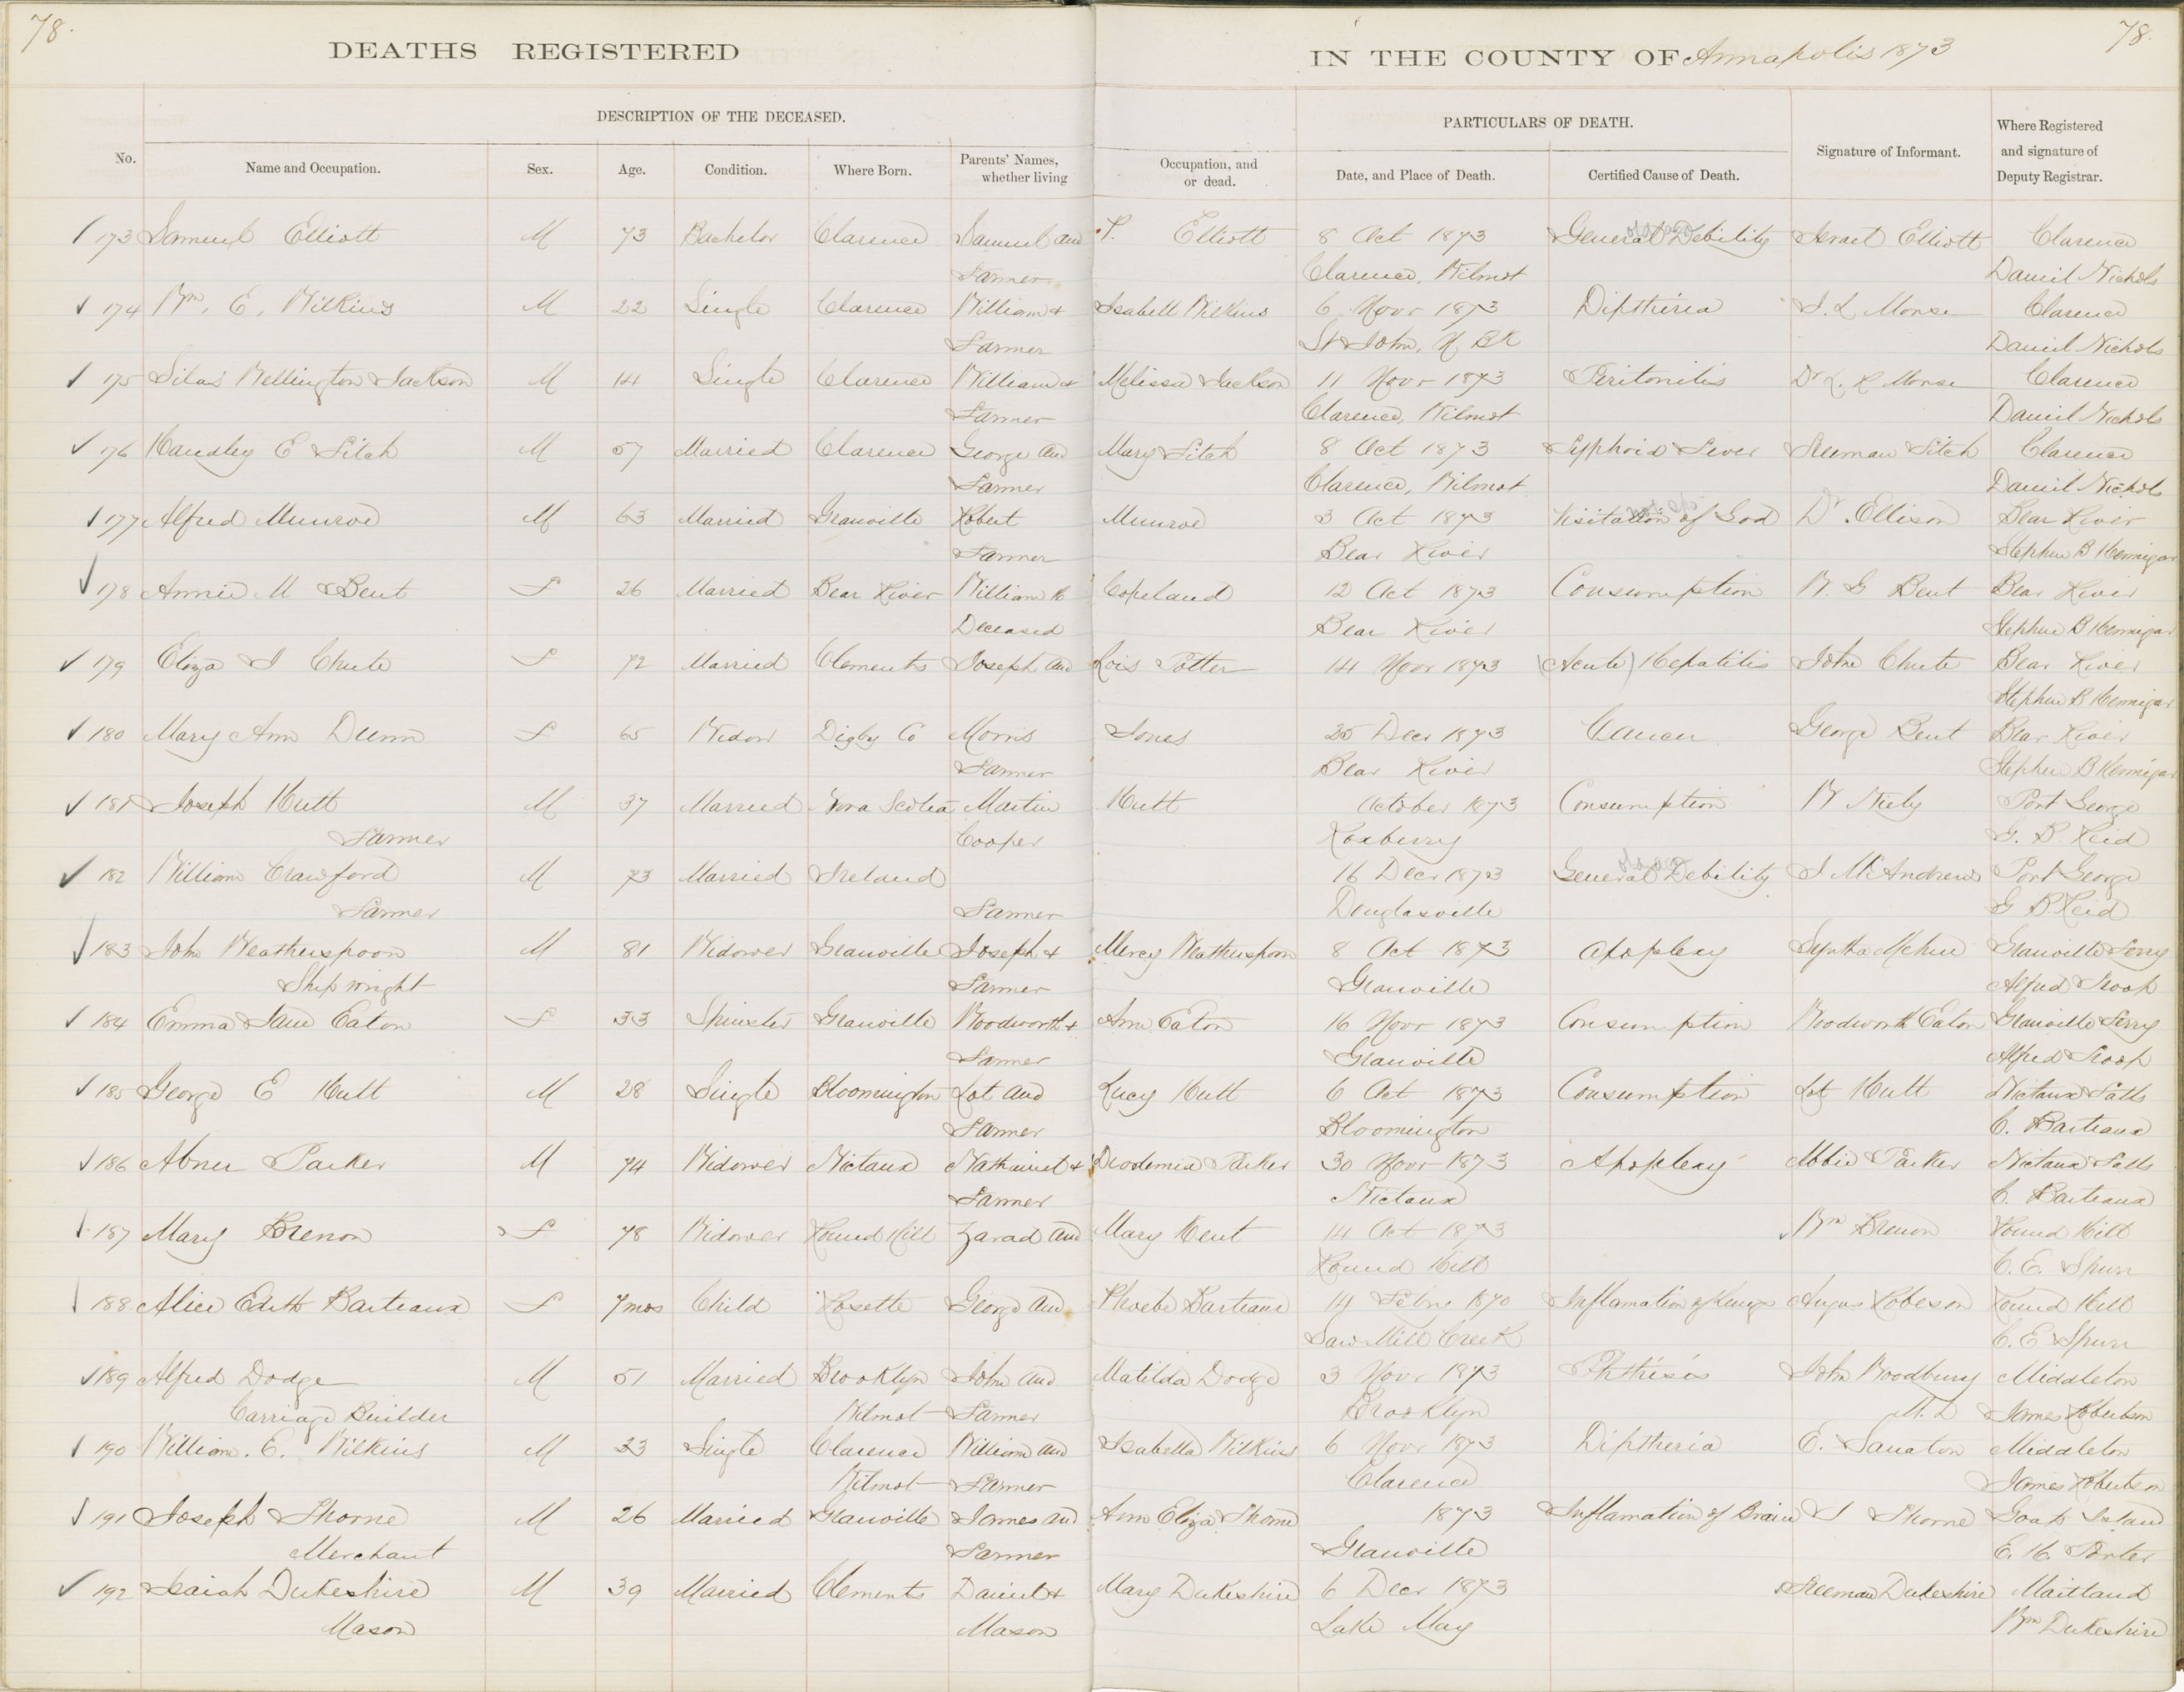 78.
78.
DEATHS REGISTERED
IN THE COUNTY OF Annapolis 1873
DESCRIPTION OF THE DECEASED.
PARTICULARS OF DEATH.
No.
Name and Occupation.
Sex.
Age.
Condition.
Where Born.
Parents' Names, whether living
Occupation, and or dead.
Date, and Place of Death.
Certified Cause of Death.
Signature of Informant.
Where Registered and signature of Deputy Registrar.
173 Samuel Elliott M 73 Bachelor Clarence Samuel and P. Elliott 8 Oct 1873 General Debility Israel Elliott Clarence
Farmer Clarence, Wilmot Daniel Nichols
174 Wm. E. Wilkins M 22 Single Clarence William & Isabell Wilkins 6 Novr 1873 Diptheria I. L. Morse Clarence
Farmer St John, N BK Daniel Nichols
175 Silas Wellington Jackson M 14 Single Clarence William & Melissa Jackson 11 Novr 1873 Peritonitis Dr L. R Morse Clarence
Farmer Clarence, Wilmot Daniel Nichols
176 Handley E Fitch M 57 Married Clarence George and Mary Fitch 8 Oct 1873 Typhoid Fever Freeman Fitch Clarence
Farmer Clarence, Wilmot Daniel Nichols
177 Alfred Munroe M 63 Married Granville Robert Munroe 3 Oct 1873 Visitation of God Dr. Ellison Bear River
Farmer Bear River Stephen B Hennigar
178 Annie M Bent F 26 Married Bear River William H Copeland 12 Oct 1873 Consumption W. G Bent Bear River
Deceased Bear River Stephen B Hennigar
179 Eliza J Chute F 72 Married Clements Joseph and Lois Potter 14 Novr 1873 (Acute) Hepatitis John Chute Bear River
Stephen B Hennigar
180 Mary Ann Dunn F 65 Widow Digby Co Morris Jones 25 Decr 1873 Cancer George Bent Bear River
Farmer Bear River Stephen B Hennigar
181 Joseph Hutt M 37 Married Nova Scotia Martin Hutt October 1873 Consumption W Neily Port George
Farmer Cooper Roxberry G. B. Reid
182 William Crawford M 73 Married Ireland 16 Decr 1873 General Debility J McAndrews Port George
Farmer Farmer Douglasville G B. Reid
183 John Weatherspoon M 81 Widower Granville Joseph & Mercy Weatherspoon 8 Oct 1873 Apoplexy Granville Ferry
Ship wright Farmer Granville Alfred Troop
184 Emma Jane Eaton F 33 Spinster Granville Woodworth & Ann Eaton 16 Novr 1873 Consumption Woodworth Eaton Granville Ferry
Farmer Granville Alfred Troop
185 George E Hutt M 28 Single Bloomington Lot and Lucy Hutt 6 Oct 1873 Consumption Lot Hutt Nictaux Falls
Farmer Bloomington C. Barteaux
186 Abner Parker M 74 Widower Nictaux Nathaniel & Parker 30 Novr 1873 Apoplexy Abbie Parker Nictaux Falls
Farmer Nictaux C. Barteaux
187 Mary Brenon F 78 Widower Round Hill Zarad and Mary Kent 14 Oct 1873 Wm Brenon Round Hill
Round Hill C. E. Spurr
188 Alice Edith Barteaux F 7mos Child Rosette George and Phoebe Barteaux 14 Febry 1870 Inflamation of Lungs Angus Robeson Round Hill
Saw Mill Creek C. E Spurr
189 Alfred Dodge M 51 Married Brooklyn John and Matilda Dodge 3 Novr 1873 Phthisis John Woodbury Middleton
Carriage Builder Wilmot Farmer Brooklyn M. D James Robertson
190 William. E. Wilkins M 23 Single Clarence William and Isabella Wilkins 6 Novr 1873 Diptheria E. Sanaton Middleton
Wilmot Farmer Clarence James Robertson
191 Joseph Thorne M 26 Married Granville James and Ann Eliza Thorne 1873 Inflamation of Brain J Thorne Goat Island
Merchant Farmer Granville E. H. Porter
192 Isaiah Dukeshire M 39 Married Clements Daniel & Mary Dukeshire 6 Decr 1873 Freeman Dukeshire Maitland
Mason Mason Lake May Wm Dukeshire